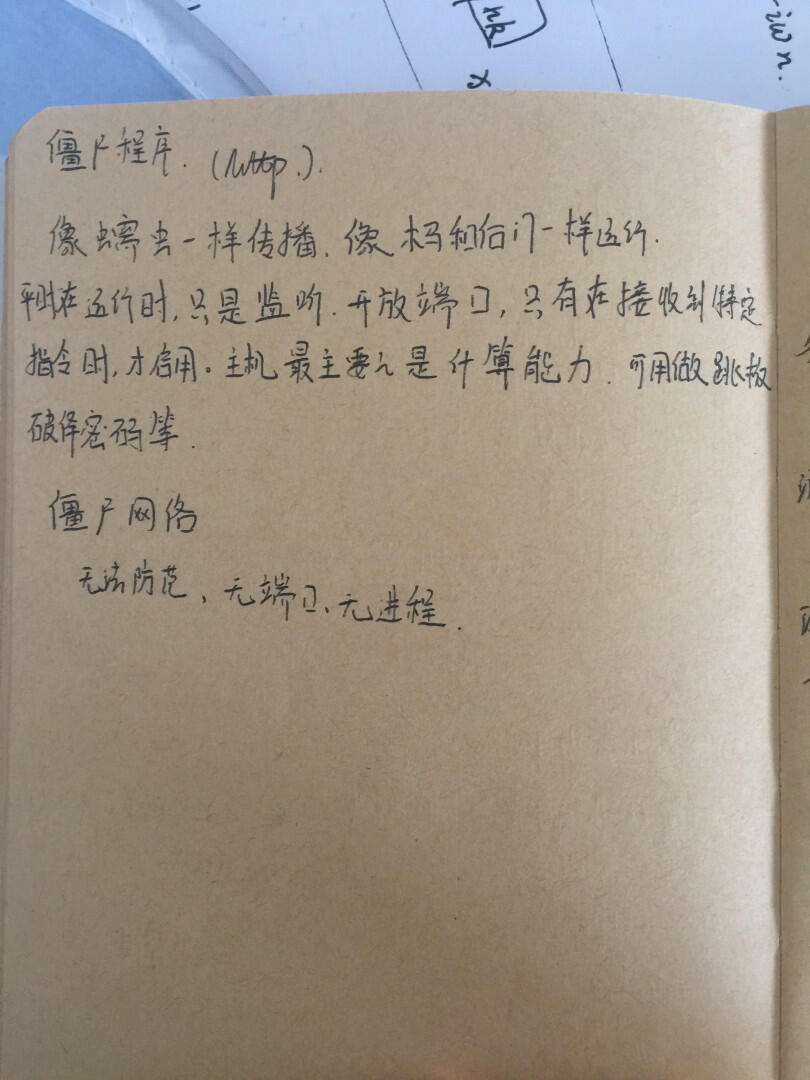 nk
x
-iwn.
僵尸程序. (http.).
像蠕虫一样传播.像木马和后门一样运行.
平时在运行时,只是监听.开放端口,只有在接收到特定
指令时,才启用。主机最主要的是计算能力.可用做跳板
破译密码等.
僵尸网络
无法防范、无端口、无进程.